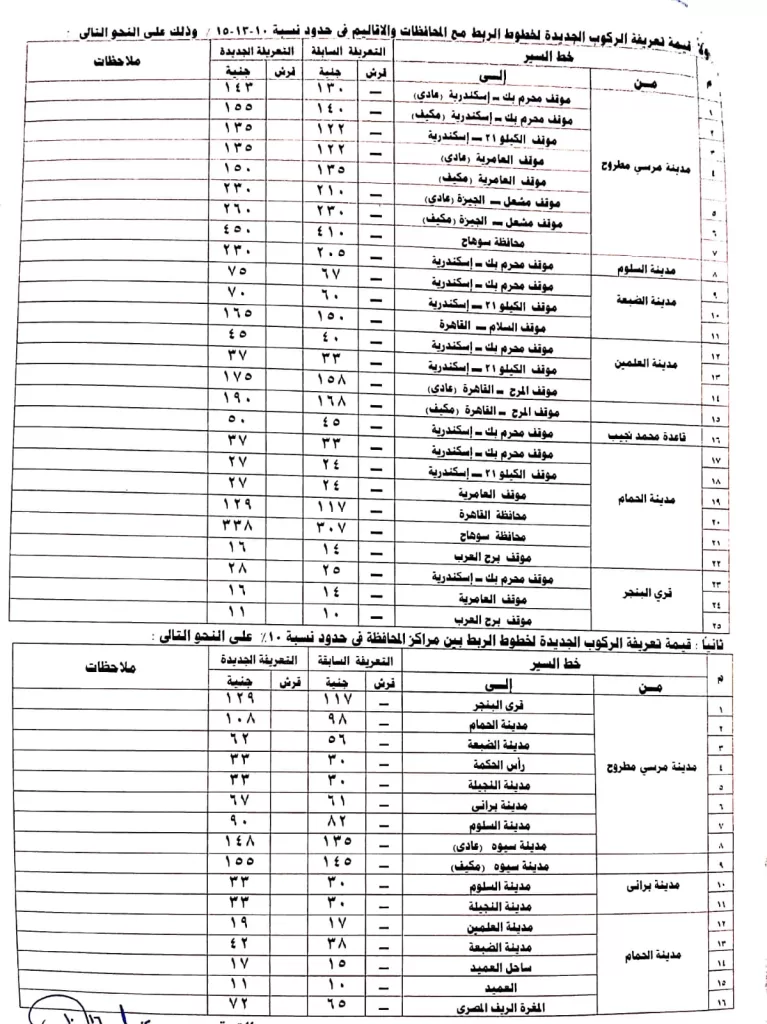 ولاً قيمة تعريفة الركوب الجديدة لخطوط الربط مع المحافظات والاقاليم فى حدود نسبة ١٠-١٣-١٥ ٪ وذلك على النحو التالى :
م خط السير التعريفة السابقة التعريفة الجديدة ملاحظات
من إلى قرش جنية قرش جنية
١ مدينة مرسي مطروح موقف محرم بك – إسكندرية (عادى) — ١٣٠ ١٤٣
٢ موقف محرم بك – إسكندرية (مكيف) — ١٤٠ ١٥٥
٣ موقف الكيلو ٢١ – إسكندرية — ١٢٢ ١٣٥
٤ موقف العامرية (عادى) — ١٢٢ ١٣٥
موقف العامرية (مكيف) ١٣٥ ١٥٠
٥ موقف مشعل – الجيزة (عادى) — ٢١٠ ٢٣٠
٦ موقف مشعل – الجيزة (مكيف) — ٢٣٠ ٢٦٠
٧ محافظة سوهاج — ٤١٠ ٤٥٠
٨ مدينة السلوم موقف محرم بك – إسكندرية — ٢٠٥ ٢٣٠
٩ مدينة الضبعة موقف محرم بك – إسكندرية — ٦٧ ٧٥
١٠ موقف الكيلو ٢١ – إسكندرية — ٦٠ ٧٠
١١ موقف السلام – القاهرة — ١٥٠ ١٦٥
١٢ مدينة العلمين موقف محرم بك – إسكندرية — ٤٠ ٤٥
١٣ موقف الكيلو ٢١ – إسكندرية — ٣٣ ٣٧
١٤ موقف المرج – القاهرة (عادى) — ١٥٨ ١٧٥
١٥ موقف المرج – القاهرة (مكيف) — ١٦٨ ١٩٠
١٦ قاعدة محمد نجيب موقف محرم بك – إسكندرية — ٤٥ ٥٠
١٧ مدينة الحمام موقف محرم بك – إسكندرية — ٣٣ ٣٧
١٨ موقف الكيلو ٢١ – إسكندرية — ٢٤ ٢٧
١٩ موقف العامرية — ٢٤ ٢٧
٢٠ محافظة القاهرة — ١١٧ ١٢٩
٢١ محافظة سوهاج — ٣٠٧ ٣٣٨
٢٢ موقف برج العرب — ١٤ ١٦
٢٣ قري البنجر موقف محرم بك – إسكندرية — ٢٥ ٢٨
٢٤ موقف العامرية — ١٤ ١٦
٢٥ موقف برج العرب — ١٠ ١١
ثانيًا : قيمة تعريفة الركوب الجديدة لخطوط الربط بين مراكز المحافظة فى حدود نسبة ١٠٪ على النحو التالى :
م خط السير التعريفة السابقة التعريفة الجديدة ملاحظات
من إلى قرش جنية قرش جنية
١ مدينة مرسي مطروح قرى البنجر — ١١٧ ١٢٩
٢ مدينة الحمام — ٩٨ ١٠٨
٣ مدينة الضبعة — ٥٦ ٦٢
٤ رأس الحكمة — ٣٠ ٣٣
٥ مدينة النجيلة — ٣٠ ٣٣
٦ مدينة برانى — ٦١ ٦٧
٧ مدينة السلوم — ٨٢ ٩٠
٨ مدينة سيوه (عادى) — ١٣٥ ١٤٨
٩ مدينة سيوه (مكيف) — ١٤٥ ١٥٥
١٠ مدينة برانى مدينة السلوم — ٣٠ ٣٣
١١ مدينة النجيلة — ٣٠ ٣٣
١٢ مدينة الحمام مدينة العلمين — ١٧ ١٩
١٣ مدينة الضبعة — ٣٨ ٤٢
١٤ ساحل العميد — ١٥ ١٧
١٥ العميد — ١٠ ١١
١٦ المغرة الريف المصرى — ٦٥ ٧٢